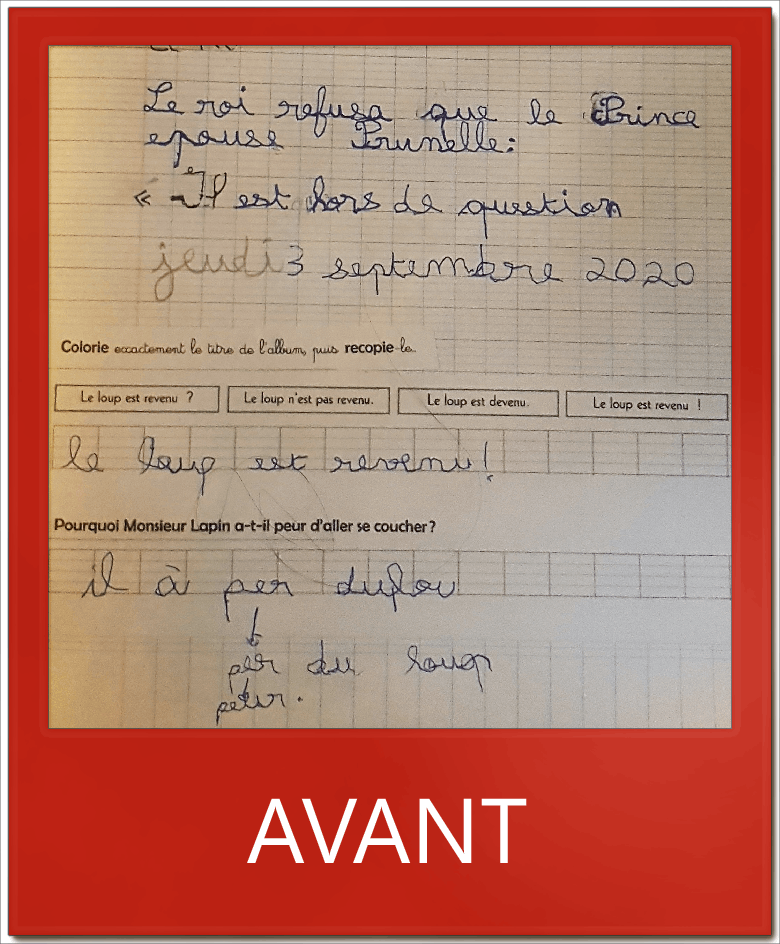 Le roi refusa que le Prince
epouse Prunelle:
« Il est hors de question
jeudi 3 septembre 2020
Colorie exactement le titre de l'album, puis recopie-le.
Le loup est revenu ?
Le loup n'est pas revenu.
Le loup est devenu.
Le loup est revenu !
le loup est revenu!
Pourquoi Monsieur Lapin a-t-il peur d'aller se coucher ?
il à per du lou
per du loup
peur.
AVANT